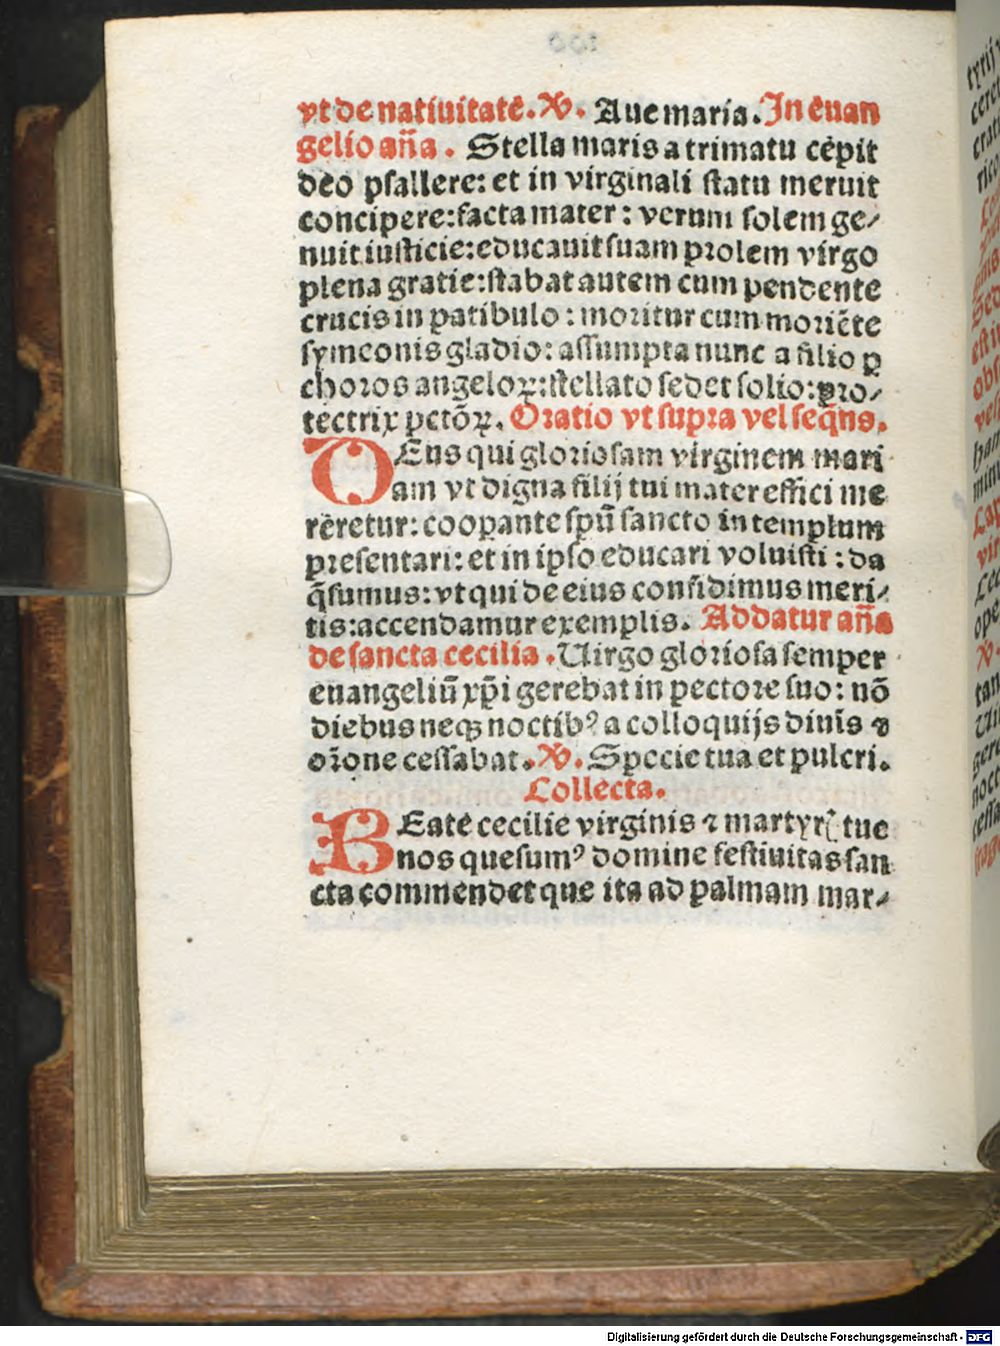 vt de natiuitatē. ℣. Aue maria. In euan
gelio añā. Stella maris a trimatu cepit
deo psallere: et in virginali statu meruit
concipere: facta mater: verum solem ge⸗
nuit iusticie: educauit suam prolem virgo
plena gratie: stabat autem cum pendente
crucis in patibulo: moritur cum moriēte
symeonis gladio: assumpta nunc a filio ꝑ
choros angeloꝝ: stellato sedet solio: pro⸗
tectrix pctōꝝ. Oratio vt supra vel seq̄ns.
DEus qui gloriosam virginem mari
am vt digna filij tui mater effici me
reretur: coopante spū sancto in templum
presentari: et in ipso educari voluisti: da
q̄sumus: vt qui de eius confidimus meri⸗
tis: accendamur exemplis. Addatur añā
de sancta cecilia. Uirgo gloriosa semper
euangeliū xp̄i gerebat in pectore suo: nō
diebus neqꝫ noctibꝰ a colloquijs diuīs ⁊
orōne cessabat. ℣. Specie tua et pulcri.
Collecta.
BEate cecilie virginis ⁊ martyrꝭ tue
nos quesumꝰ domine festiuitas san
cta commendet que ita ad palmam mar⸗
Digitalisierung gefördert durch die Deutsche Forschungsgemeinschaft - DFG